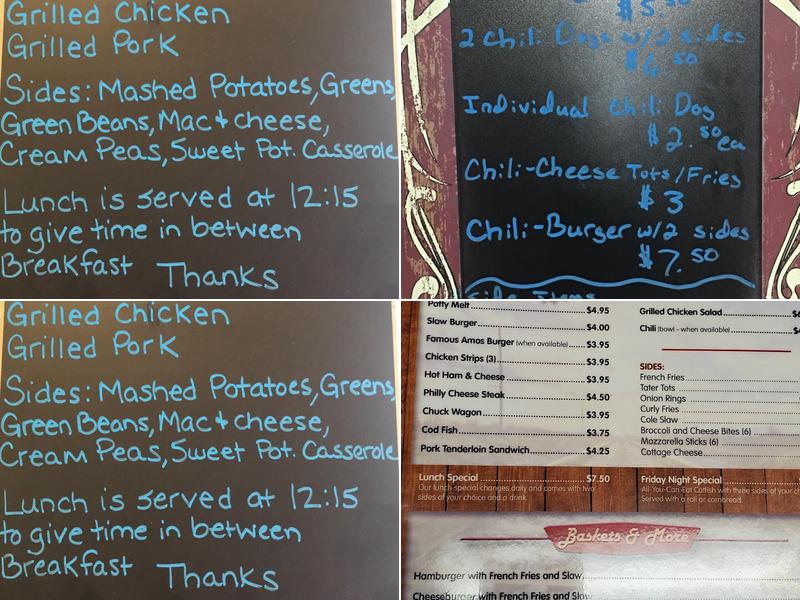 Grilled Chicken
Grilled Pork
Sides: Mashed Potatoes, Greens,
Green Beans, Mac & cheese,
Cream Peas, Sweet Pot. Casserole
Lunch is served at 12:15
to give time in between
Breakfast Thanks
$5.50
2 Chili Dogs w/2 sides
$6.50
Individual Chili Dog
$2.50 ea
Chili-Cheese Tots/Fries
$3
Chili-Burger w/2 sides
$7.50
Side Items
Grilled Chicken
Grilled Pork
Sides: Mashed Potatoes, Greens,
Green Beans, Mac & cheese,
Cream Peas, Sweet Pot. Casserole
Lunch is served at 12:15
to give time in between
Breakfast Thanks
Patty Melt $4.95
Slaw Burger $4.00
Famous Amos Burger (when available) $3.95
Chicken Strips (3) $3.95
Hot Ham & Cheese $3.95
Philly Cheese Steak $4.50
Chuck Wagon $3.95
Cod Fish $3.75
Pork Tenderloin Sandwich $4.25
Grilled Chicken Salad
Chili (bowl - when available)
SIDES:
French Fries
Tater Tots
Onion Rings
Curly Fries
Cole Slaw
Broccoli and Cheese Bites (6)
Mozzarella Sticks (6)
Cottage Cheese
Lunch Special $7.50
Our lunch special changes daily and comes with two
sides of your choice and a drink.
Friday Night Special
All-You-Can-Eat Catfish with three sides of your
Served with a roll or cornbread.
Baskets & More
Hamburger with French Fries and Slaw
Cheeseburger with French Fries and Slaw